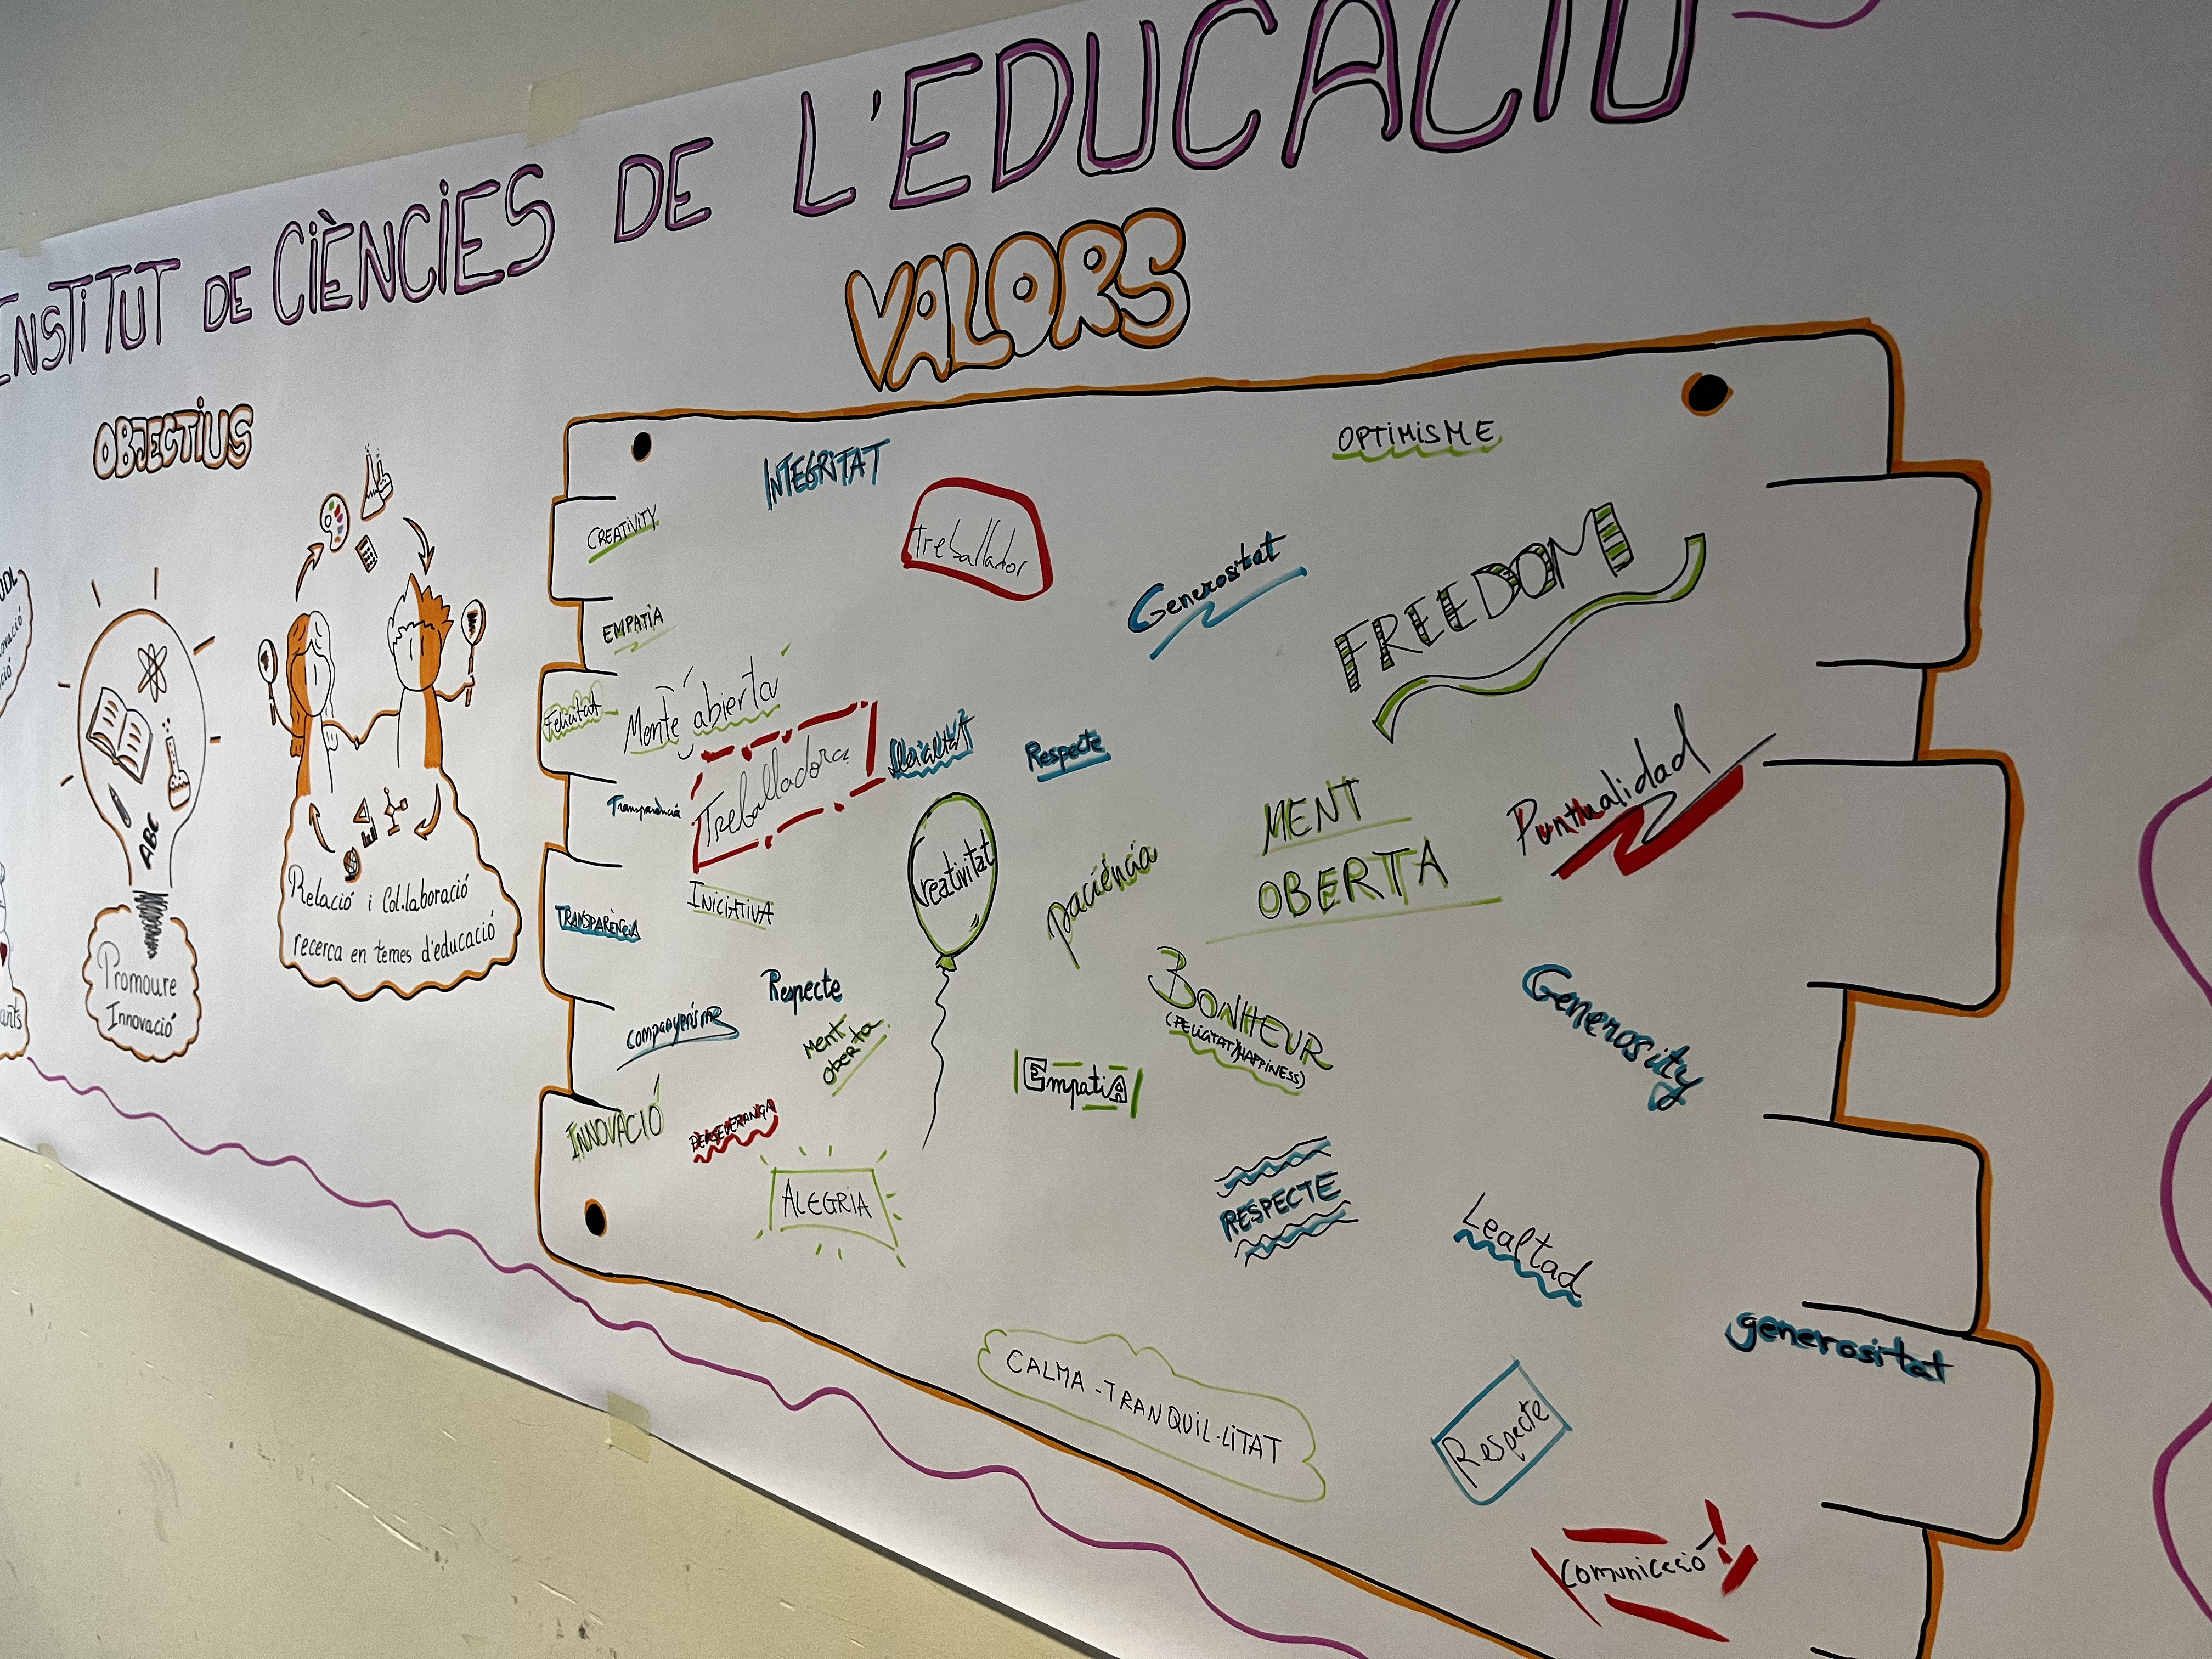 INSTITUT DE CIÈNCIES DE L'EDUCACIÓ
OBJECTIUS
UDL
ABC
Promoure
Innovació
Relació i Col·laboració
recerca en temes d'educació
VALORS
INTEGRITAT
OPTIMISME
CREATIVITY
Treballador
Generositat
FREEDOM
EMPATIA
Felicitat
Mente abierta
Treballadora
Respecte
Puntualidad
Transparència
MENT
OBERTA
Creativitat
paciència
INICIATIVA
TRANSPARÈNCIA
Respecte
companyerisme
Ment
Oberta
BONHEUR
(FELICITAT/HAPPINESS)
Generosity
EmpatiA
INNOVACIÓ
PERSEVERANÇA
ALEGRIA
RESPECTE
Lealtad
generositat
CALMA-TRANQUIL·LITAT
Respecte
Comunicació